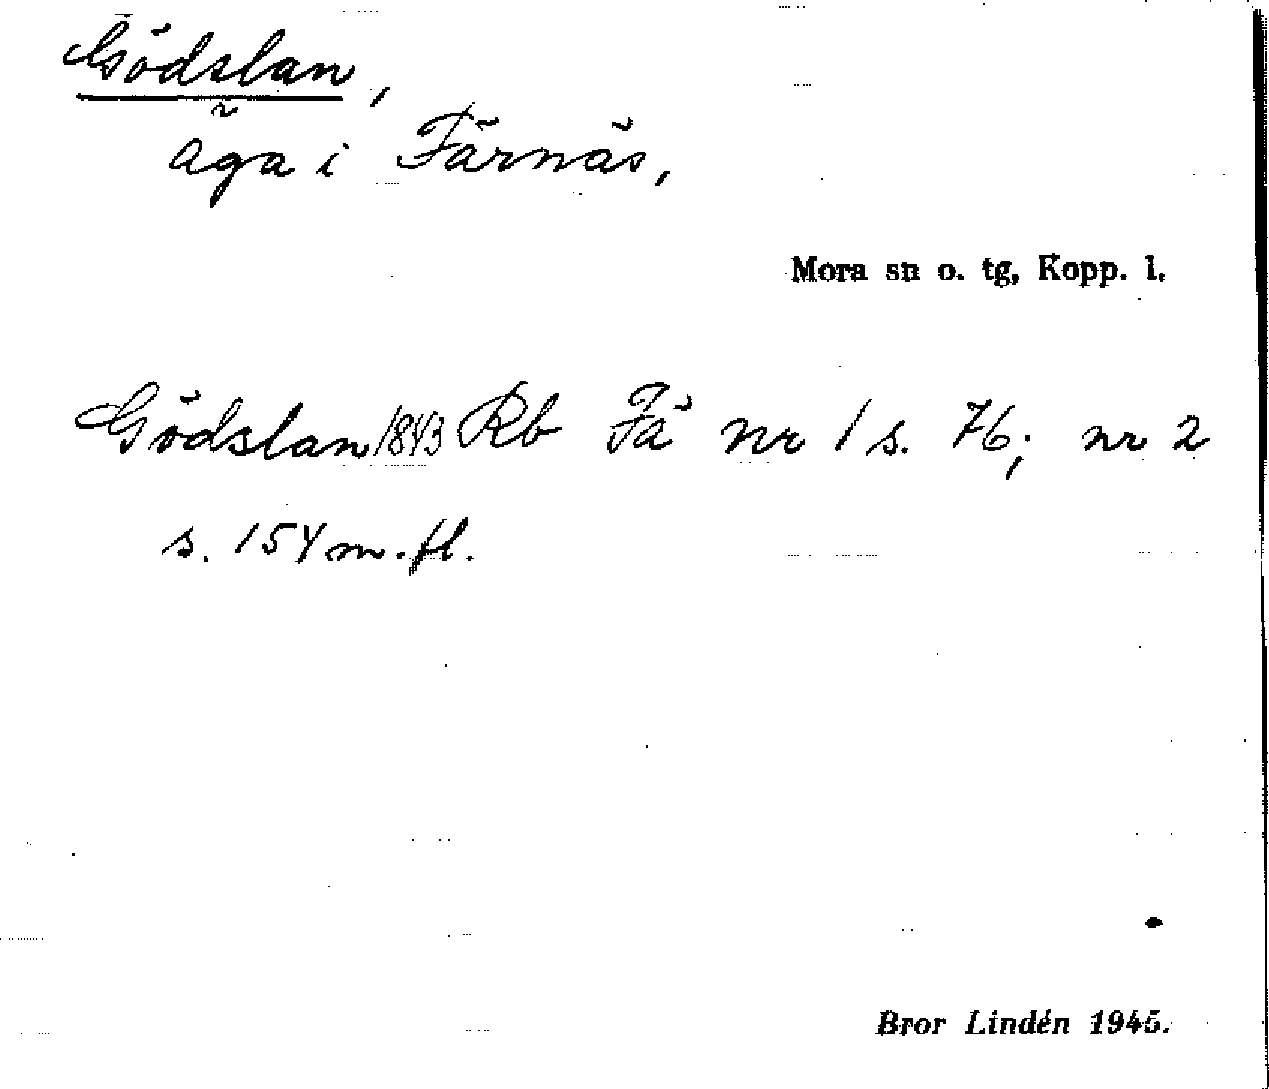 Gödslan,
äga i Färnäs,
Mora sn o. tg, Kopp. l.
Gödslan 1843 Rb Fä nr 1 s. 76; nr 2
s. 154 m. fl.
Bror Lindén 1945.